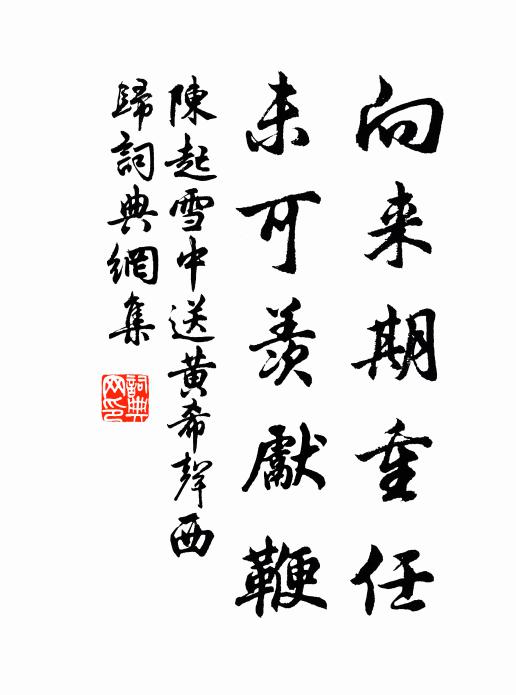 向来期重任
未可羨獻鞭
陳起雪中送黄希聲西
歸詞典網集
詞典
网印